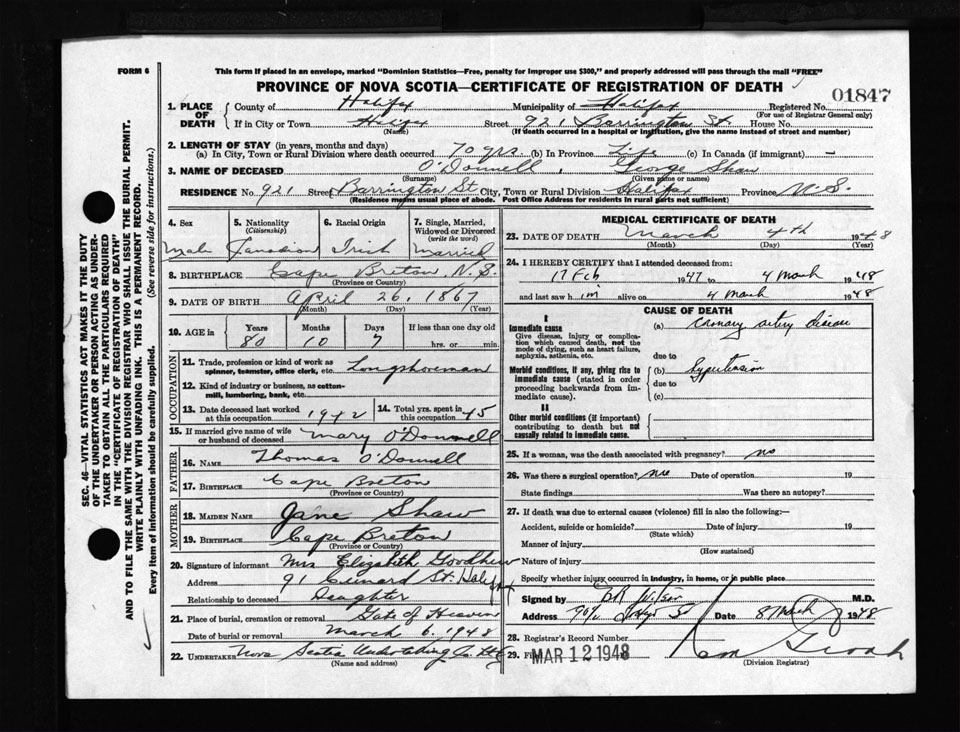 FORM 6
This form if placed in an envelope, marked "Dominion Statistics—Free, penalty for improper use $300," and properly addressed will pass through the mail "FREE"
PROVINCE OF NOVA SCOTIA—CERTIFICATE OF REGISTRATION OF DEATH
01847
1. PLACE OF DEATH County of Halifax Municipality of Halifax Registered No.
(For use of Registrar General only)
If in City or Town Halifax Street 921 Barrington St. House No.
(Name) (If death occurred in a hospital or institution, give the name instead of street and number)
2. LENGTH OF STAY (in years, months and days)
(a) In City, Town or Rural Division where death occurred 70 yrs. (b) In Province Life (c) In Canada (if immigrant) —
3. NAME OF DECEASED O'Donnell, George Shaw
(Surname) (Given name or names)
RESIDENCE No. 921 Street Barrington St City, Town or Rural Division Halifax Province N.S.
(Residence means usual place of abode. Post Office Address for residents in rural parts not sufficient)
4. Sex 5. Nationality (Citizenship) 6. Racial Origin 7. Single, Married, Widowed or Divorced (write the word)
Male Canadian Irish Married
8. BIRTHPLACE Cape Breton, N.S.
(Province or Country)
9. DATE OF BIRTH April 26, 1867
(Month) (Day) (Year)
10. AGE in Years Months Days If less than one day old
80 10 7 hrs. or min.
OCCUPATION
11. Trade, profession or kind of work as spinner, teamster, office clerk, etc. Longshoreman
12. Kind of industry or business, as cotton-mill, lumbering, bank, etc.
13. Date deceased last worked at this occupation 1942 14. Total yrs. spent in this occupation 45
15. If married give name of wife or husband of deceased Mary O'Donnell
FATHER
16. NAME Thomas O'Donnell
17. BIRTHPLACE Cape Breton
(Province or Country)
MOTHER
18. MAIDEN NAME Jane Shaw
19. BIRTHPLACE Cape Breton
(Province or Country)
20. Signature of informant Mrs Elizabeth Goodhew
Address 91 Cunard St. Halifax
Relationship to deceased Daughter
21. Place of burial, cremation or removal Gate of Heaven
Date of burial or removal March 6, 1948
22. UNDERTAKER Nova Scotia Undertaking Co. Ltd
(Name and address)
MEDICAL CERTIFICATE OF DEATH
23. DATE OF DEATH March 4th 1948
(Month) (Day) (Year)
24. I HEREBY CERTIFY that I attended deceased from:
17 Feb 1947 to 4 March 1948
and last saw him alive on 4 March 1948
CAUSE OF DEATH
I
Immediate cause
Give disease, injury or complication which caused death, not the mode of dying, such as heart failure, asphyxia, asthenia, etc.
(a) Coronary artery disease
due to
Morbid conditions, if any, giving rise to immediate cause (stated in order proceeding backwards from immediate cause).
(b) hypertension
due to
(c)
II
Other morbid conditions (if important) contributing to death but not causally related to immediate cause.
25. If a woman, was the death associated with pregnancy? no
26. Was there a surgical operation? Date of operation 19
State findings Was there an autopsy?
27. If death was due to external causes (violence) fill in also the following:—
Accident, suicide or homicide? Date of injury 19
(State which)
Manner of injury
(How sustained)
Nature of injury
Specify whether injury occurred in industry, in home, or in public place
Signed by Wilson M.D.
Address Date 8 March 1948
28. Registrar's Record Number
29.
MAR 12 1948
(Division Registrar)
SEC. 46—VITAL STATISTICS ACT MAKES IT THE DUTY
OF THE UNDERTAKER OR PERSON ACTING AS UNDER-
TAKER TO OBTAIN ALL THE PARTICULARS REQUIRED
IN THE "CERTIFICATE OF REGISTRATION OF DEATH"
AND TO FILE THE SAME WITH THE DIVISION REGISTRAR WHO SHALL ISSUE THE BURIAL PERMIT.
WRITE PLAINLY WITH UNFADING INK. THIS IS A PERMANENT RECORD.
Every item of information should be carefully supplied. (See reverse side for instructions.)